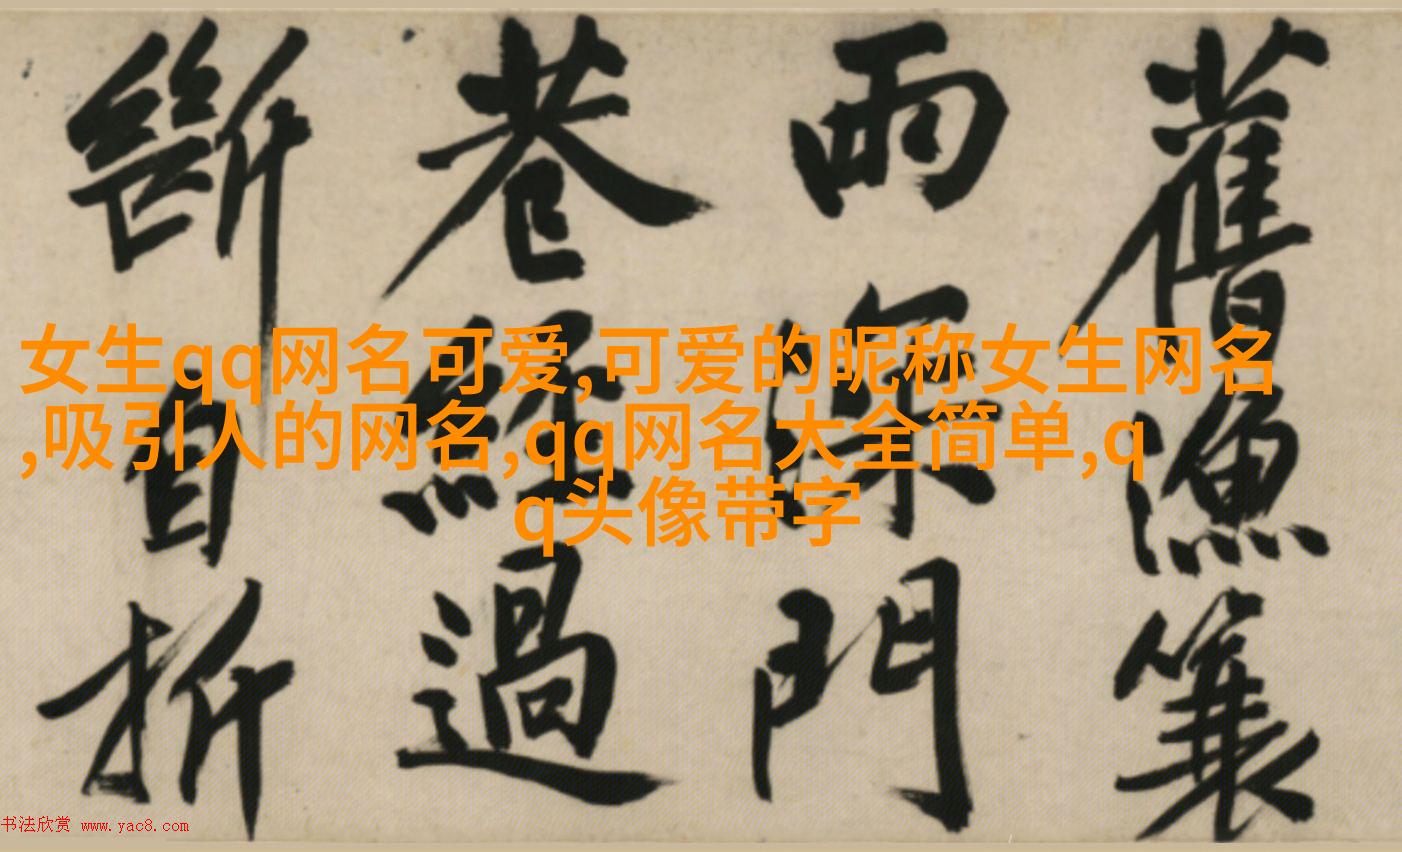 舊漁簑
雨深門
巷經過
斷自折
女生qq网名可爱,可爱的昵称女生网名
,吸引人的网名,qq网名大全简单,q
q头像带字
书法欣赏 www.yac8.com